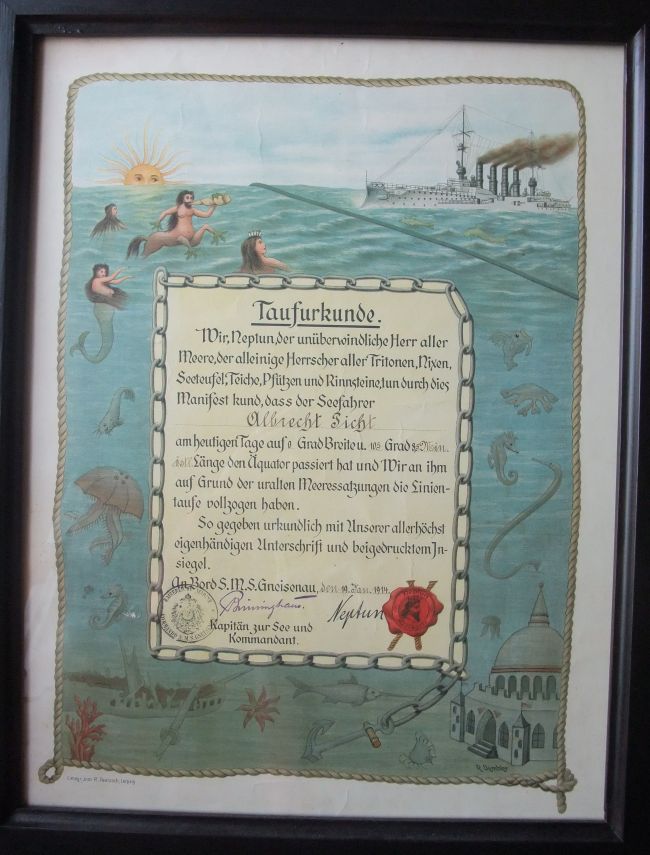 Taufurkunde.
Wir, Neptun, der unüberwindliche Herr aller
Meere, der alleinige Herrscher aller Tritonen, Nixen,
Seeteufel, Teiche, Pfützen und Rinnsteine, tun durch dies
Manifest kund, dass der Seefahrer
Albrecht Sicht
am heutigen Tage auf 0 Grad Breite u. 105 Grad Min.
Länge den Äquator passiert hat und Wir an ihm
auf Grund der uralten Meeressatzungen die Linien-
taufe vollzogen haben.
So gegeben urkundlich mit Unserer allerhöchst
eigenhändigen Unterschrift und beigedrucktem In-
siegel.
An Bord S.M.S. Gneisenau, den 19. Jan. 1914.
Neptun
Kapitän zur See und
Kommandant.